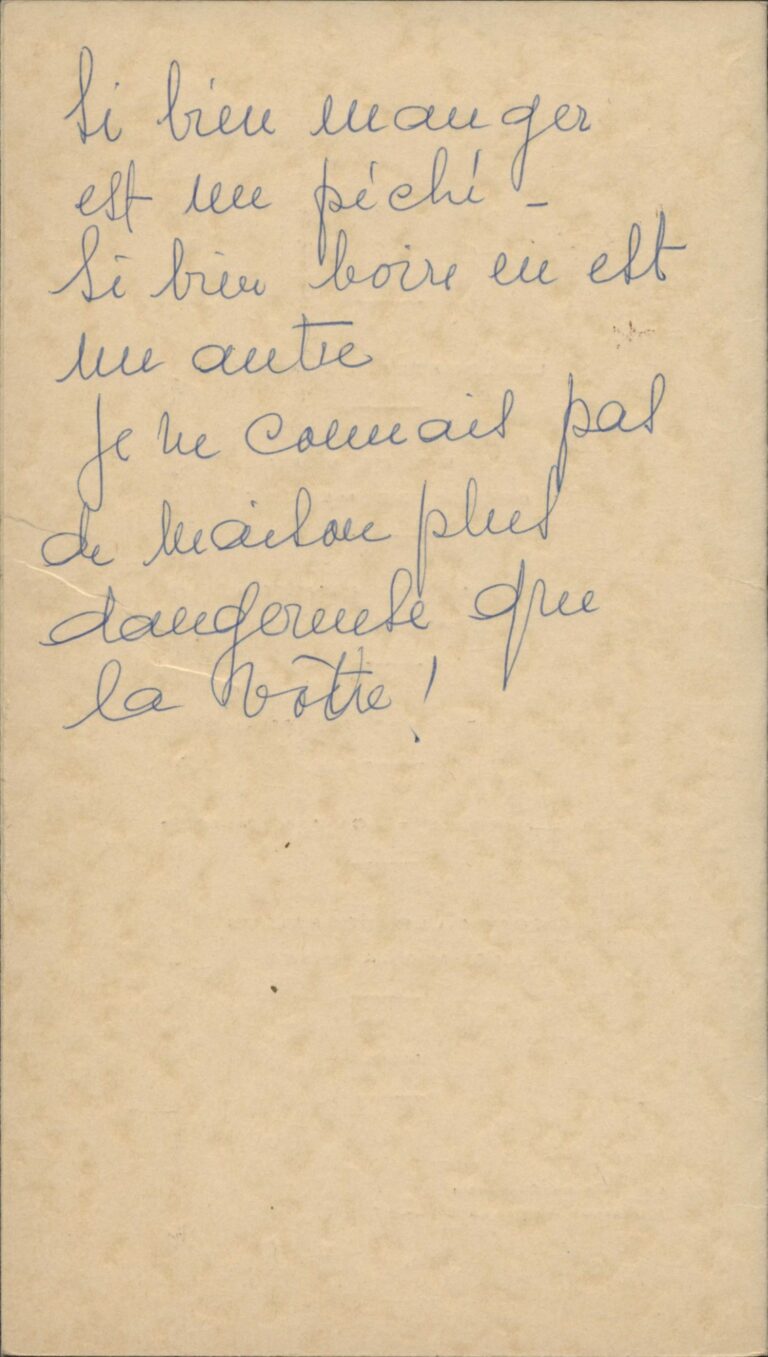 Si bien manger
est un péché -
Si bien boire en est
un autre
Je ne connais pas
de maison plus
dangereuse que
la vôtre !